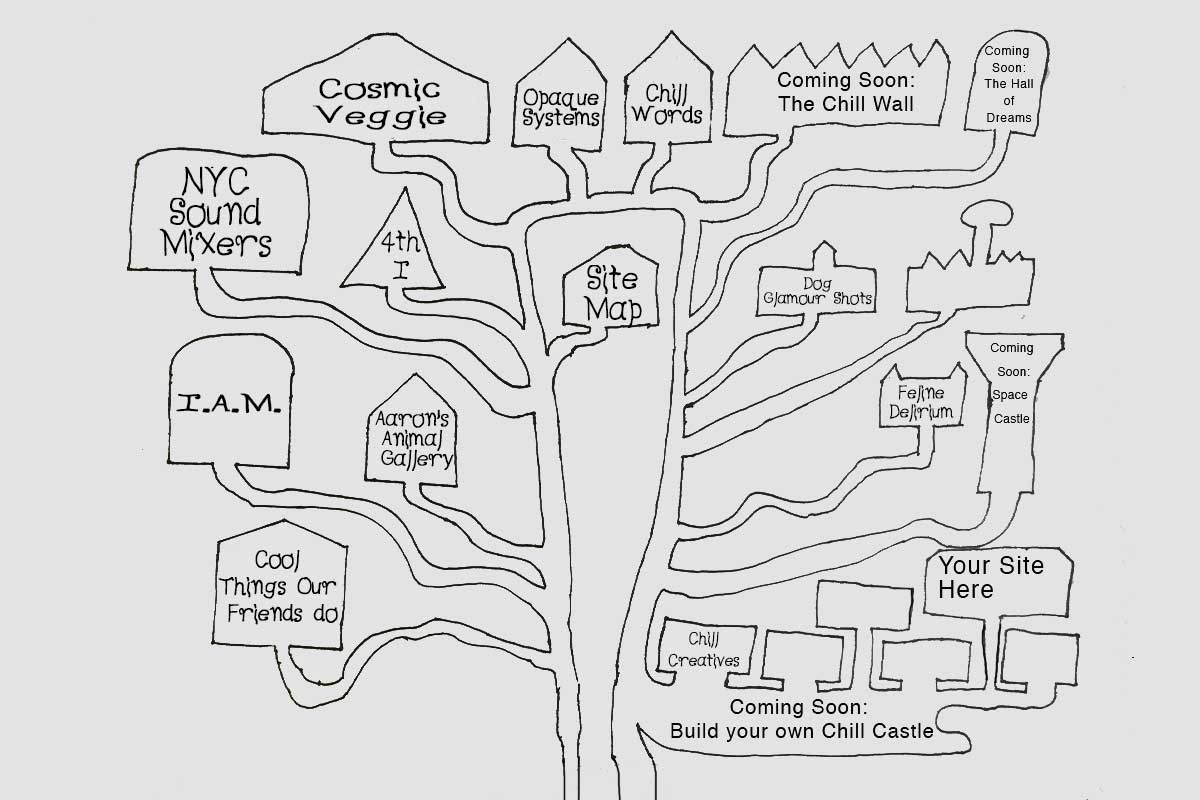 Cosmic
Veggie
Opaque
Systems
Chill
Words
Coming Soon:
The Chill Wall
Coming
Soon:
The Hall
of
Dreams
NYC
Sound
Mixers
4th
I
Site
Map
Dog
Glamour Shots
I.A.M.
Aaron's
Animal
Gallery
Feline
Delirium
Coming
Soon:
Space
Castle
Cool
Things Our
Friends do
Your Site
Here
Chill
Creatives
Coming Soon:
Build your own Chill Castle